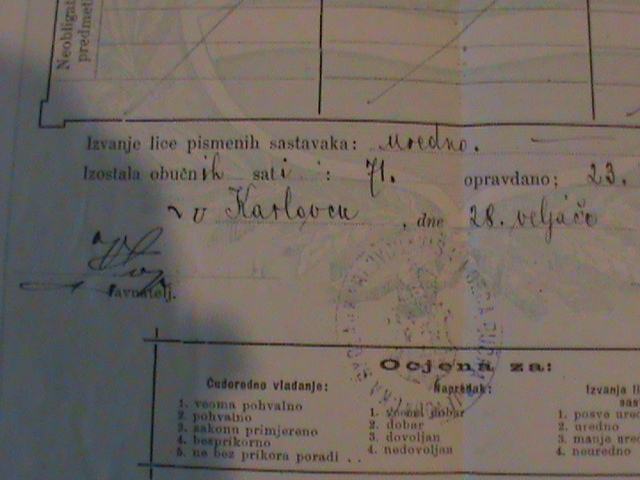 Neobligat
predmeti
Izvanje lice pismenih sastavaka: uredno.
Izostala obučnih sati : 71. opravdano; 23.
U Karlovcu , dne 28. veljače
ravnatelj.
Ocjena za:
Ćudoredno vladanje: Napredak: Izvanje li
sas
1. veoma pohvalno 1. veoma dobar 1. posve ured
2. pohvalno 2. dobar 2. uredno
3. zakonu primjereno 3. dovoljan 3. manje ured
4. besprikorno 4. nedovoljan 4. neuredno
5. ne bez prikora poradi . .